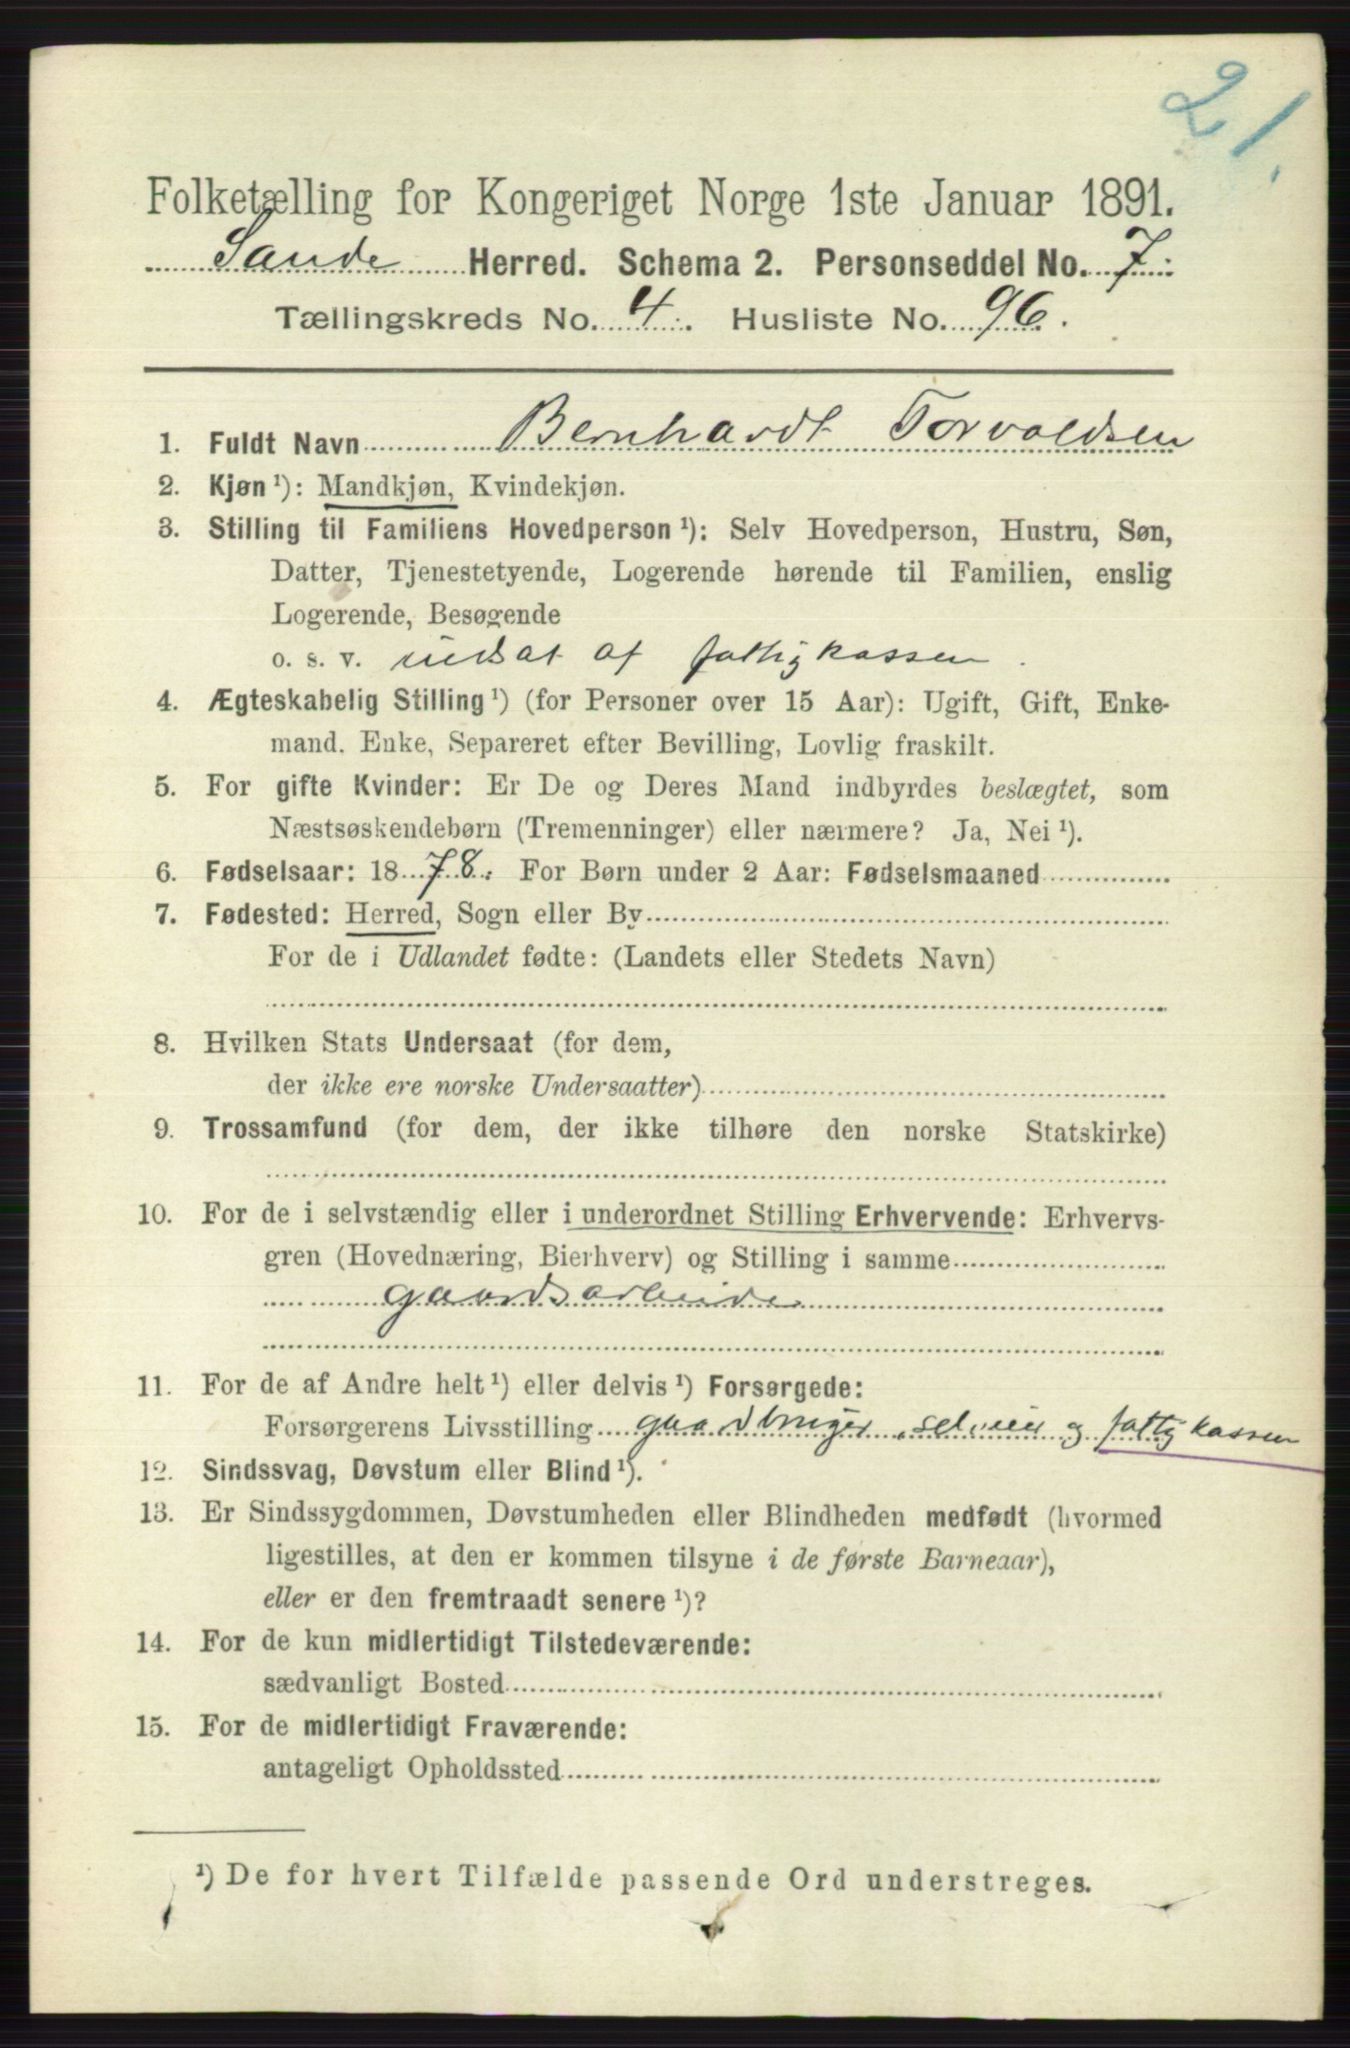 21.
Folketælling for Kongeriget Norge 1ste Januar 1891.
Sande Herred. Schema 2. Personseddel No. 7.
Tællingskreds No. 4. Husliste No. 96.
1. Fuldt Navn Bernhardt Torvaldsen
2. Kjøn ¹): Mandkjøn, Kvindekjøn.
3. Stilling til Familiens Hovedperson ¹): Selv Hovedperson, Hustru, Søn,
Datter, Tjenestetyende, Logerende hørende til Familien, enslig
Logerende, Besøgende
o. s. v. udsat af fattigkassen.
4. Ægteskabelig Stilling ¹) (for Personer over 15 Aar): Ugift, Gift, Enke-
mand, Enke, Separeret efter Bevilling, Lovlig fraskilt.
5. For gifte Kvinder: Er De og Deres Mand indbyrdes beslægtet, som
Næstsøskendebørn (Tremenninger) eller nærmere? Ja, Nei ¹).
6. Fødselsaar: 1878. For Børn under 2 Aar: Fødselsmaaned
7. Fødested: Herred, Sogn eller By
For de i Udlandet fødte: (Landets eller Stedets Navn)
8. Hvilken Stats Undersaat (for dem,
der ikke ere norske Undersaatter)
9. Trossamfund (for dem, der ikke tilhøre den norske Statskirke)
10. For de i selvstændig eller i underordnet Stilling Erhvervende: Erhvervs-
gren (Hovednæring, Bierhverv) og Stilling i samme
gaardsarbeide
11. For de af Andre helt ¹) eller delvis ¹) Forsørgede:
Forsørgerens Livsstilling gaardbruger, selveier og fattigkassen
12. Sindssvag, Døvstum eller Blind ¹).
13. Er Sindssygdommen, Døvstumheden eller Blindheden medfødt (hvormed
ligestilles, at den er kommen tilsyne i de første Barneaar),
eller er den fremtraadt senere ¹)?
14. For de kun midlertidigt Tilstedeværende:
sædvanligt Bosted
15. For de midlertidigt Fraværende:
antageligt Opholdssted
¹) De for hvert Tilfælde passende Ord understreges.